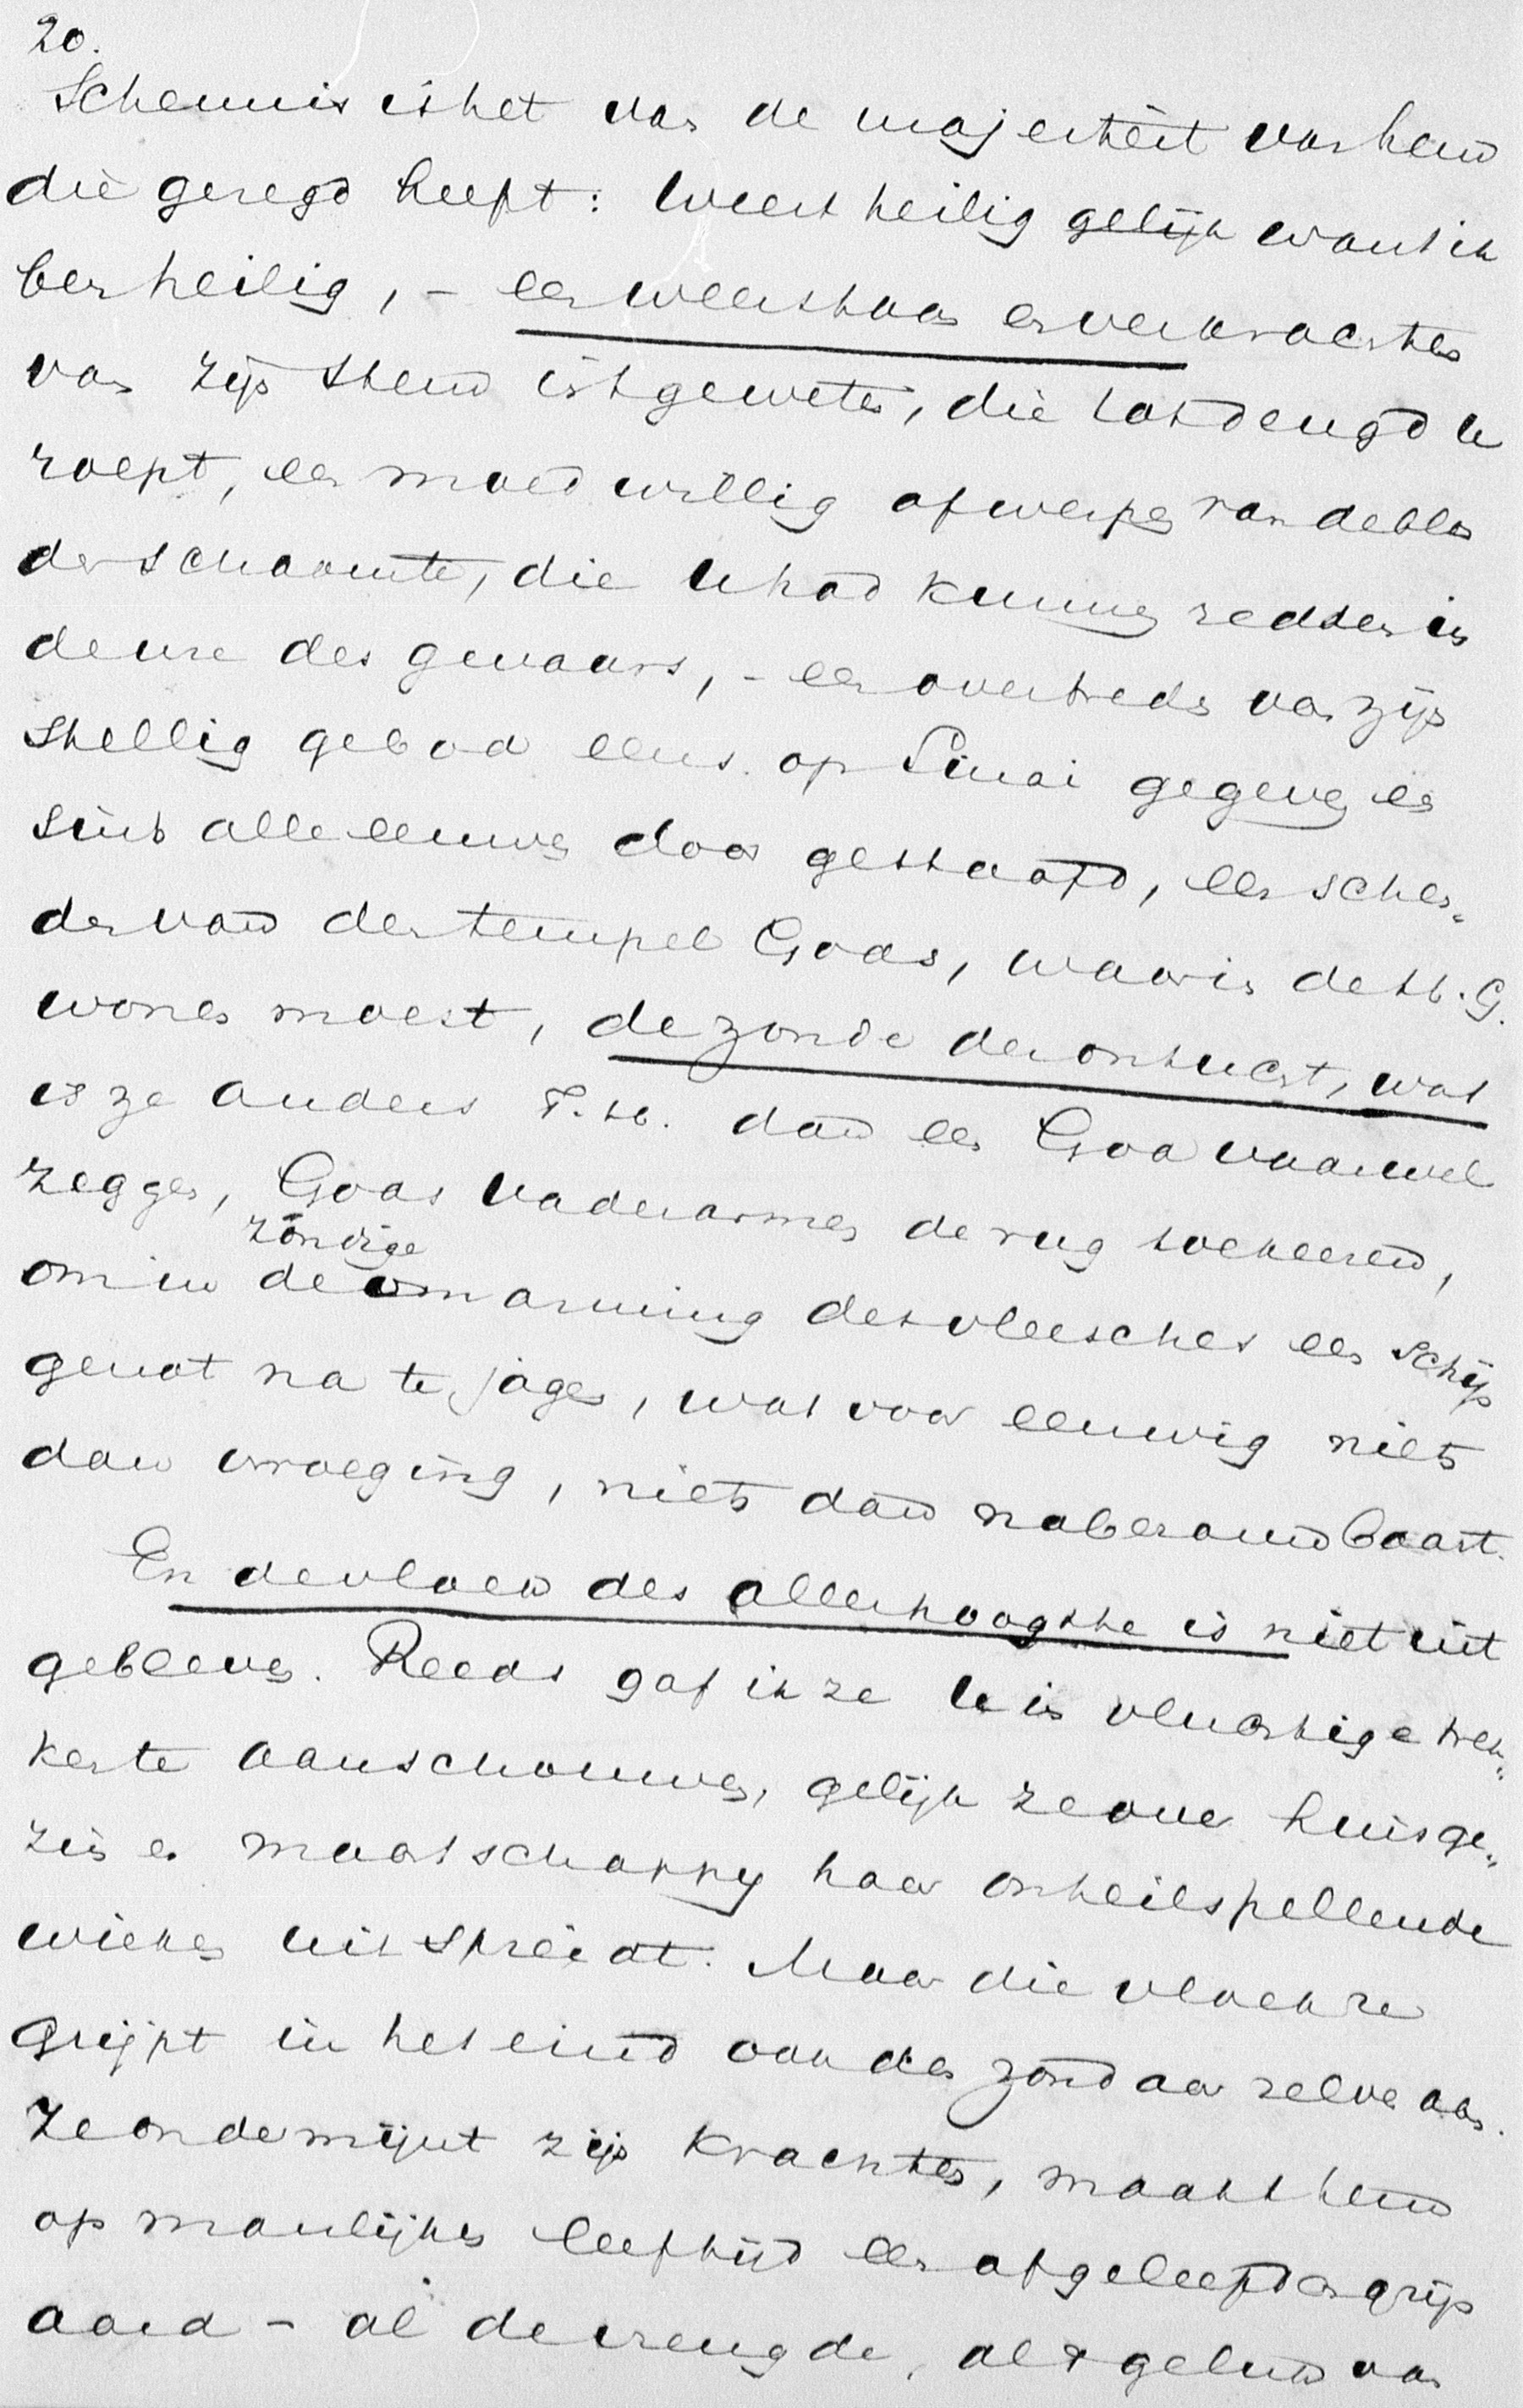 20.
Schennis is het van de majesteit van hem
die gezegd heeft: Weest heilig gelijk want ik
ben heilig, – een weerstaan en verkrachten
van zijn stem in 't geweten, die tot deugd u
roept, een moedwillig afwerpen van de blos
der schaamte, die u had kunnen redden in
de ure des gevaars, – een overtreden van zijn
stellig gebod eens op Sinai gegeven en
sinds alle eeuwen door gestaafd, een schen„
den van den tempel Gods, waarin de H. G.
wonen moest, de zonde der ontucht, wat
is ze anders T. H. dan een God vaarwel
zeggen, Gods vaderarmen de rug toekeeren,
zondige
om in de omarming des vleesches een schijn
genot na te jagen, wat voor eeuwig niets
dan wroeging, niets dan naberouw baart.
En de vloek des allerhoogste is niet uit
gebleven. Reeds gaf ik ze u in vluchtige trek„
ken te aanschouwen, gelijk ze over huisge„
zin en maatschappy haar onheilspellende
wieken uitspreidt. Maar die vloek ze
grijpt in het eind ook den zondaar zelve aan.
Ze ondermijnt zijn krachten, maakt hem
op manlijken leeftijd een afgeleefden grijs
aard – al de vreugde, al 't geluk van